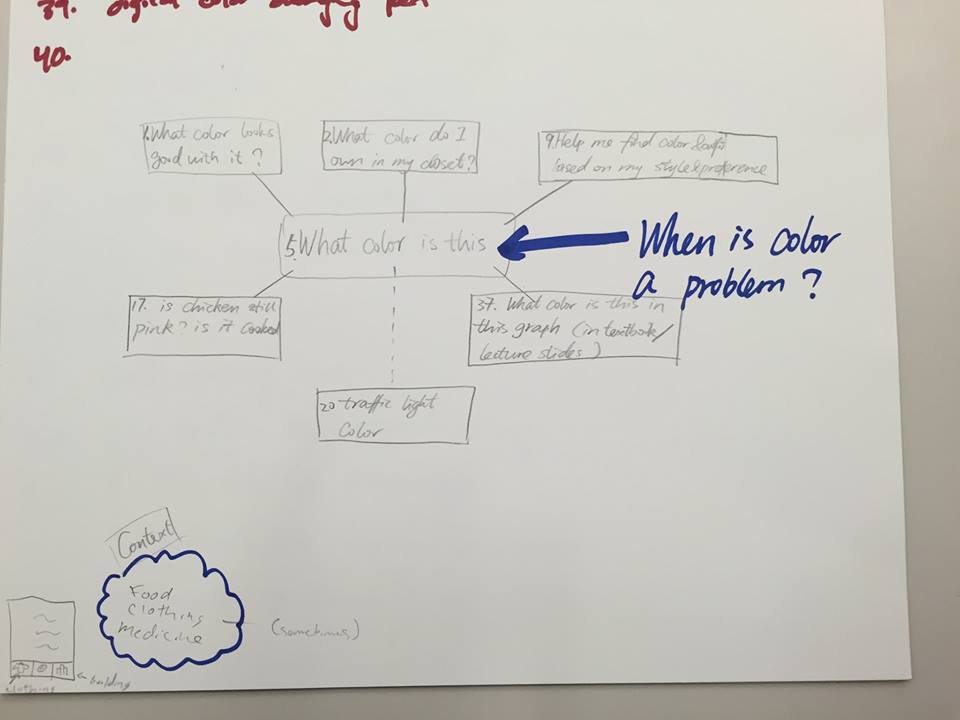 39. digital color changing pen
40.
1. What color looks
good with it ?
2. What color do I
own in my closet?
9. Help me find color &
based on my style & preference
5. What color is this
When is color
a problem ?
17. is chicken still
pink? is it cooked
37. What color is this in
this graph (in textbook/
lecture slides)
20 traffic light
color
Context
Food
clothing
medicine
(sometimes)
building
clothing